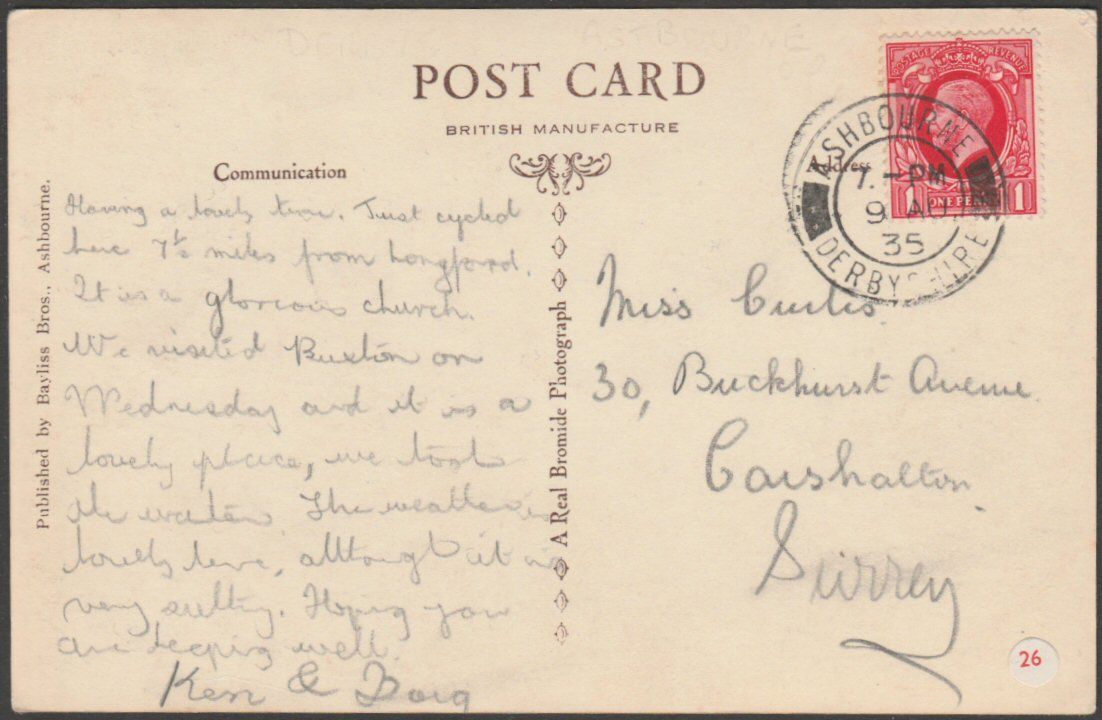 ASTBOURNE
POST CARD
BRITISH MANUFACTURE
Communication
Address
POSTAGE REVENUE
1 ONE PENNY 1
ASHBOURNE
7. - PM
9 AU
35
DERBYSHIRE
Having a lovely time. Just cycled
here 7½ miles from Longford.
It is a glorious church.
We visited Buxton on
Wednesday and it is a
lovely place, we took
the waters. The weather is
lovely here, although it is
very sultry. Hoping you
are keeping well.
Ken & Doug
Miss Curtis.
30, Buckhurst Avenue.
Carshalton
Surrey
Published by Bayliss Bros., Ashbourne.
A Real Bromide Photograph
26